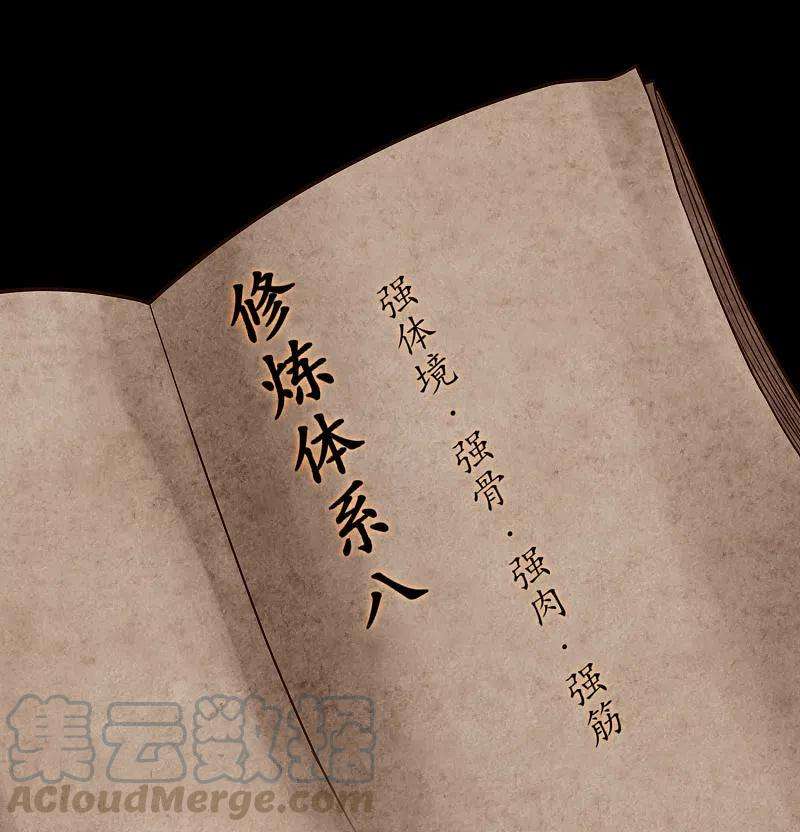 修炼体系八
强体境·强骨·强肉·强筋
集云数据
ACloudMerge.com